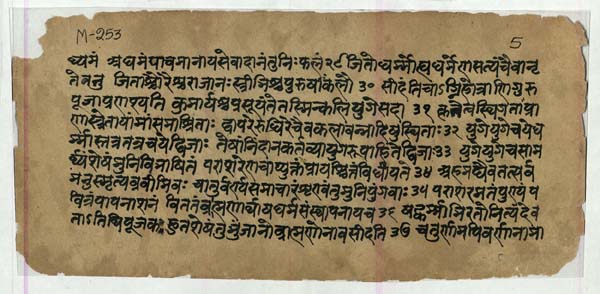 M-253
5
ध्यमं अधमंयाचमानायसेवादानंतुनिःफलं २९ जितोधर्म्मोह्यधर्मेणसत्यंचैवानृ
तेनतु जिताश्चौरैश्चराजानःस्त्रीभिश्चपुरुषाकलौ ३० सीदंतिचाऽग्निहोत्राणिगुरु
पूजाप्रणश्यति कुमार्यश्चप्रसूयंतेतस्मिन्कलियुगेसदा ३१ कृतेत्वस्थिगताप्रा
णास्त्रेतायांमांसमाश्रिताः द्वापरेरुधिरंचैवकलावन्नादिषुस्थिताः ३२ युगेयुगेचयेध
र्म्मास्तत्रतत्रचयेद्विजाः तेषांनिंदानकर्तव्यायुगरूपाहितेद्विजाः ३३ युगेयुगेचसाम
र्थ्यंशेषंमुनिविभाषितं पराशरेणचाप्युक्तंप्रायश्चित्तंविधीयते ३४ अहमद्यैवतत्सर्व
मनुस्मृत्यब्रवीमिवः चातुर्वर्ण्यसमाचारंशृणुतमुनिपुंगवाः ३५ पराशरमतंपुण्यंप
वित्रंपापनाशनं चिंतितंब्राह्मणार्थायधर्मसंस्थापनायच ३६ षट्कर्माभिरतोनित्यंदेव
ताऽतिथिपूजकः हुतशेषंतुभुंजानोब्राह्मणोनावसीदति ३७ चतुर्णामपिवर्णानामा